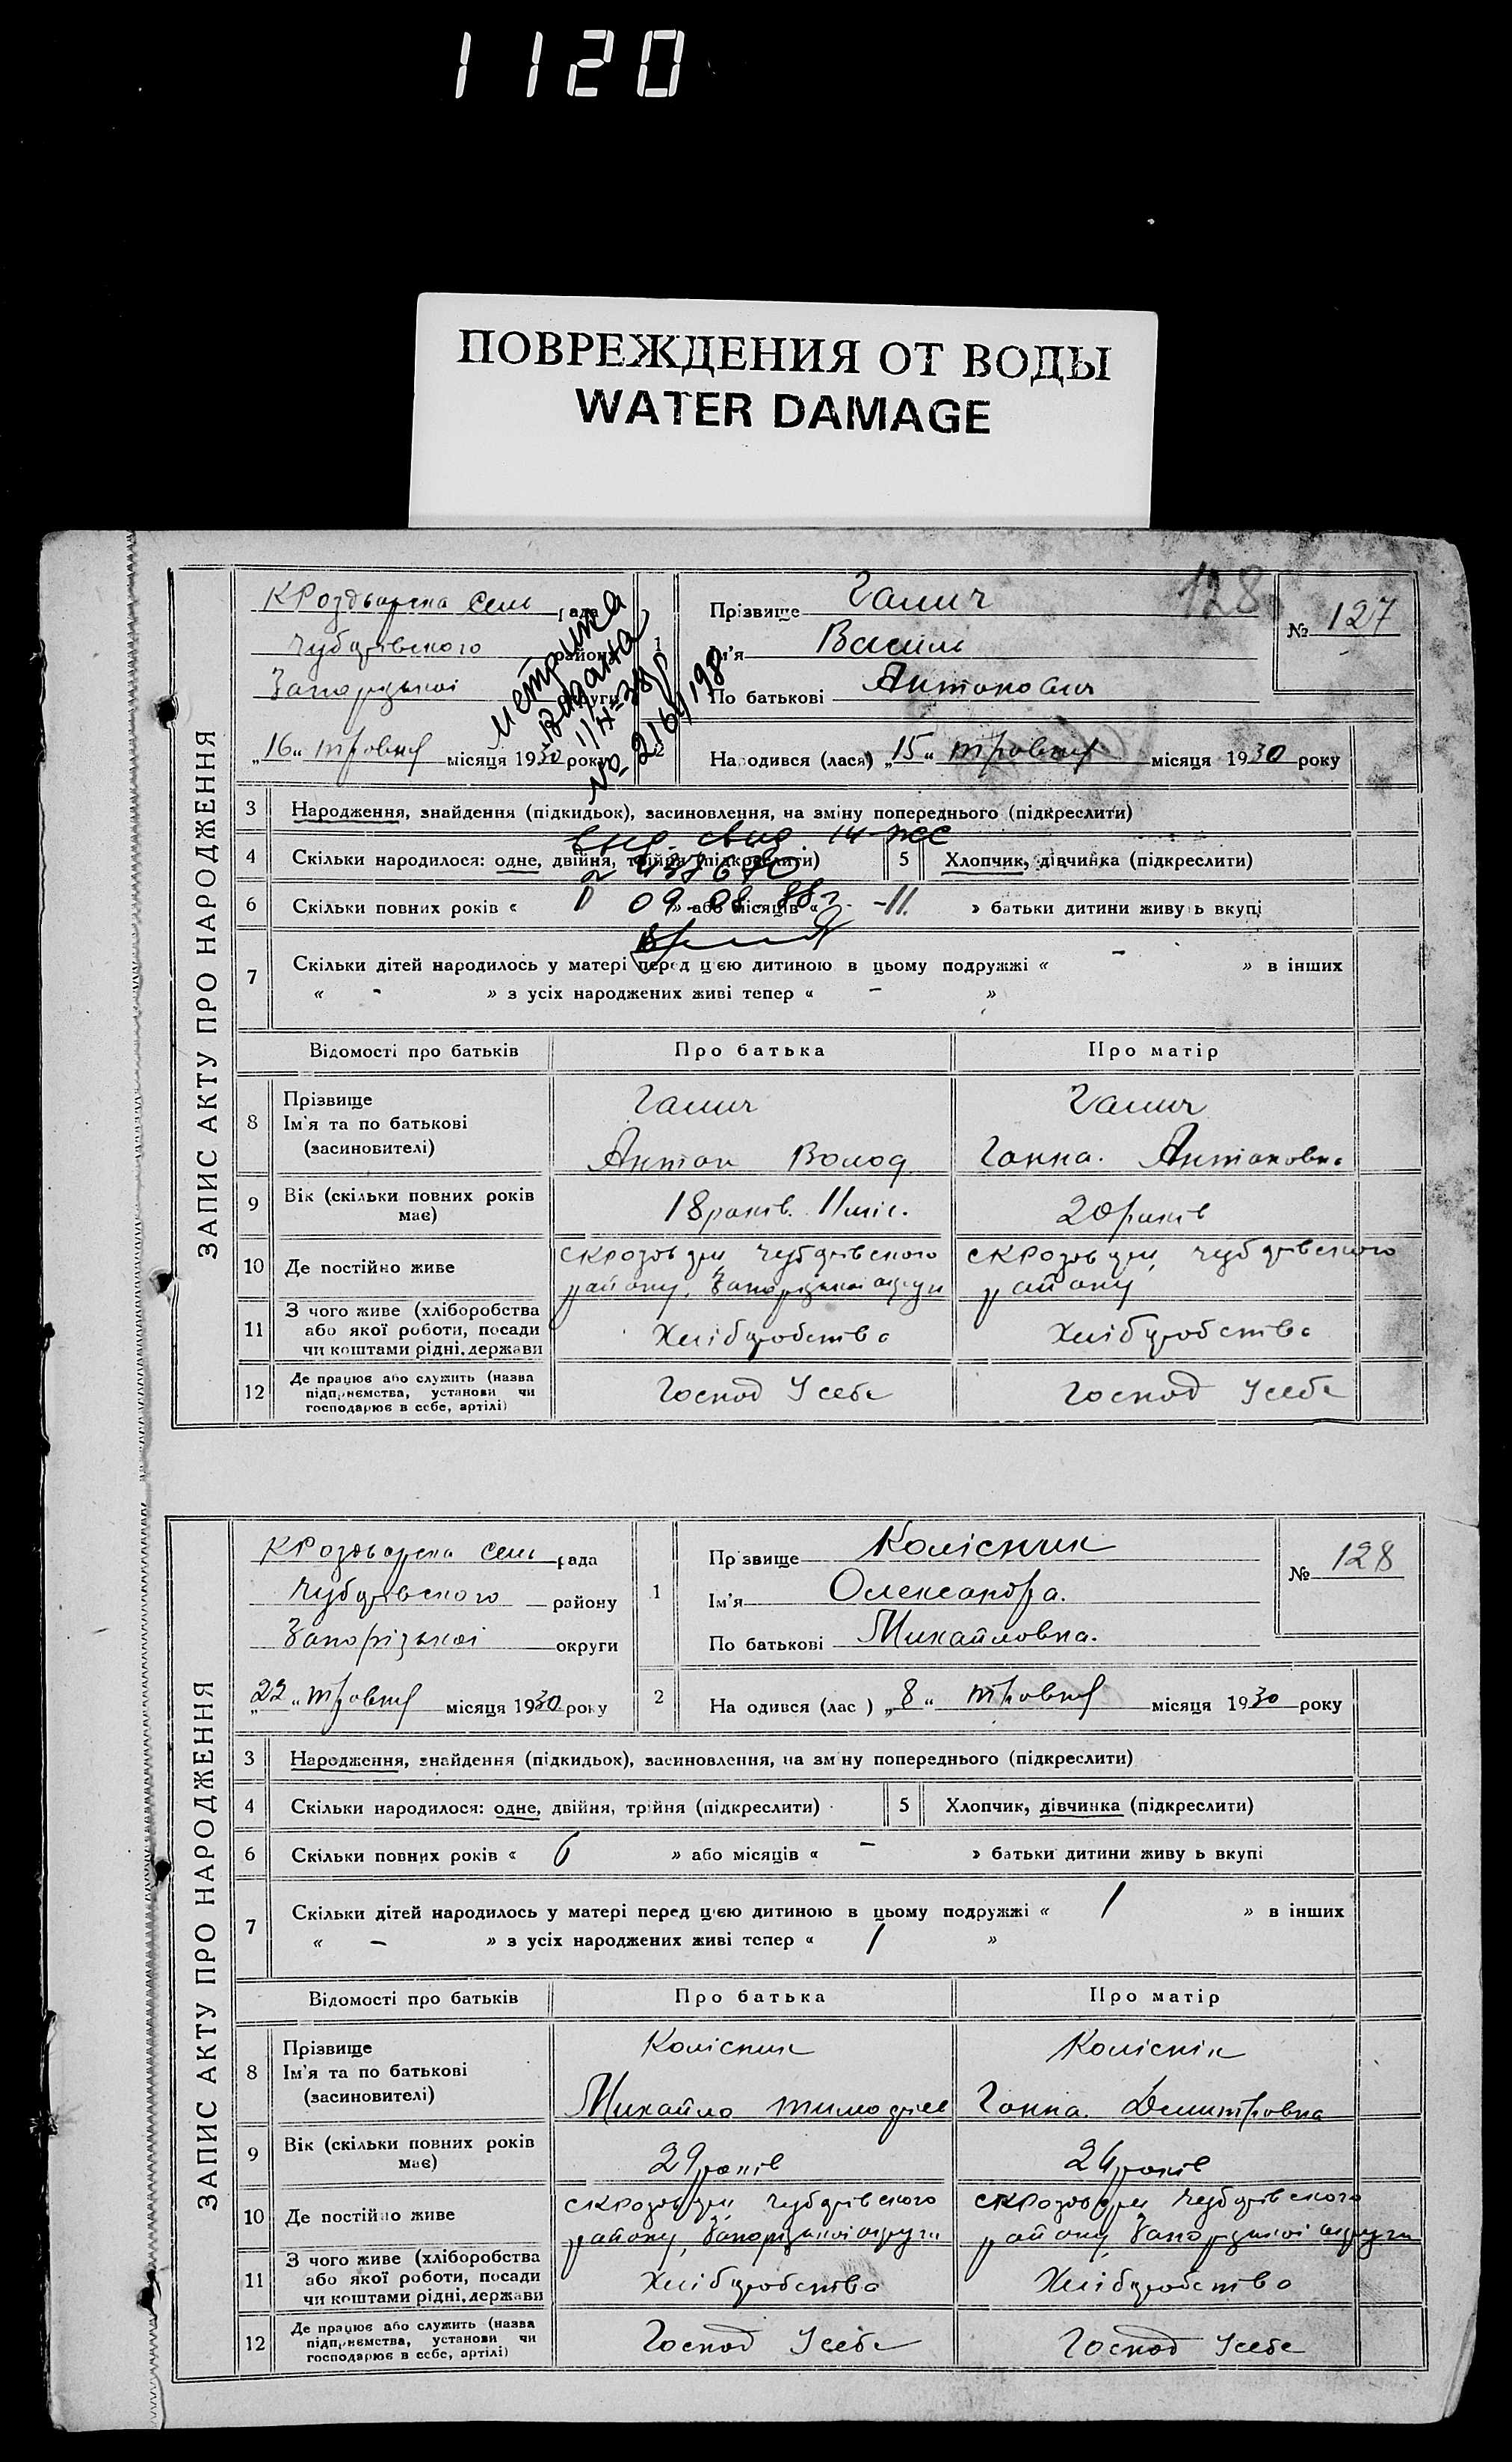 1120
ПОВРЕЖДЕНИЯ ОТ ВОДЫ
WATER DAMAGE
ЗАПИС АКТУ ПРО НАРОДЖЕННЯ
128
№ 127
рада
Чубарівського району
Запорізької округи
„16“ травня місяця 1930 року
метрика
видана
1 Прізвище Галич
Ім'я Василь
По батькові Антонович
2 Народився (лася) „15“ травня місяця 1930 року
3 Народження, знайдення (підкидьок), засиновлення, на зміну попереднього (підкреслити)
4 Скільки народилося: одне, двійня, трійня (підкреслити) 5 Хлопчик, дівчинка (підкреслити)
09.08.88г.
6 Скільки повних років « » або місяців « -11. » батьки дитини живуть вкупі
7 Скільки дітей народилось у матері перед цією дитиною в цьому подружжі « - » в інших
« - » з усіх народжених живі тепер « - »
Відомості про батьків Про батька Про матір
8 Прізвище Галич Галич
Ім'я та по батькові
(засиновителі) Антон Волод. Ганна. Антоновна
9 Вік (скільки повних років має) 18 років. 11 міс. 20 років
10 Де постійно живе Чубарівського Чубарівського
району, Запорізької округи району
11 З чого живе (хліборобства
або якої роботи, посади Хліборобство Хліборобство
чи коштами рідні, держави
12 Де працює або служить (назва
підприємства, установи чи Господ У себе Господ У себе
господарює в себе, артілі)
ЗАПИС АКТУ ПРО НАРОДЖЕННЯ
№ 128
рада
Чубарівського району
Запорізької округи
„22“ травня місяця 1930 року
1 Прізвище Колісник
Ім'я Олександра.
По батькові Михайловна.
2 На одився (лас ) „8“ травня місяця 1930 року
3 Народження, знайдення (підкидьок), засиновлення, на зміну попереднього (підкреслити)
4 Скільки народилося: одне, двійня, трійня (підкреслити) 5 Хлопчик, дівчинка (підкреслити)
6 Скільки повних років « 6 » або місяців « - » батьки дитини живу ь вкупі
7 Скільки дітей народилось у матері перед цією дитиною в цьому подружжі « 1 » в інших
« - » з усіх народжених живі тепер « 1 »
Відомості про батьків Про батька Про матір
8 Прізвище Колісник Коліснік
Ім'я та по батькові
(засиновителі) Михайло Ганна. Демитровна
9 Вік (скільки повних років має) 29 років 24 років
10 Де постійно живе Чубарівського Чубарівського
району, Запорізької округи району, Запорізької округи
11 З чого живе (хліборобства
або якої роботи, посади Хліборобство Хліборобство
чи коштами рідні, держави
12 Де працює або служить (назва
підприємства, установи чи Господ У себе Господ У себе
господарює в себе, артілі)